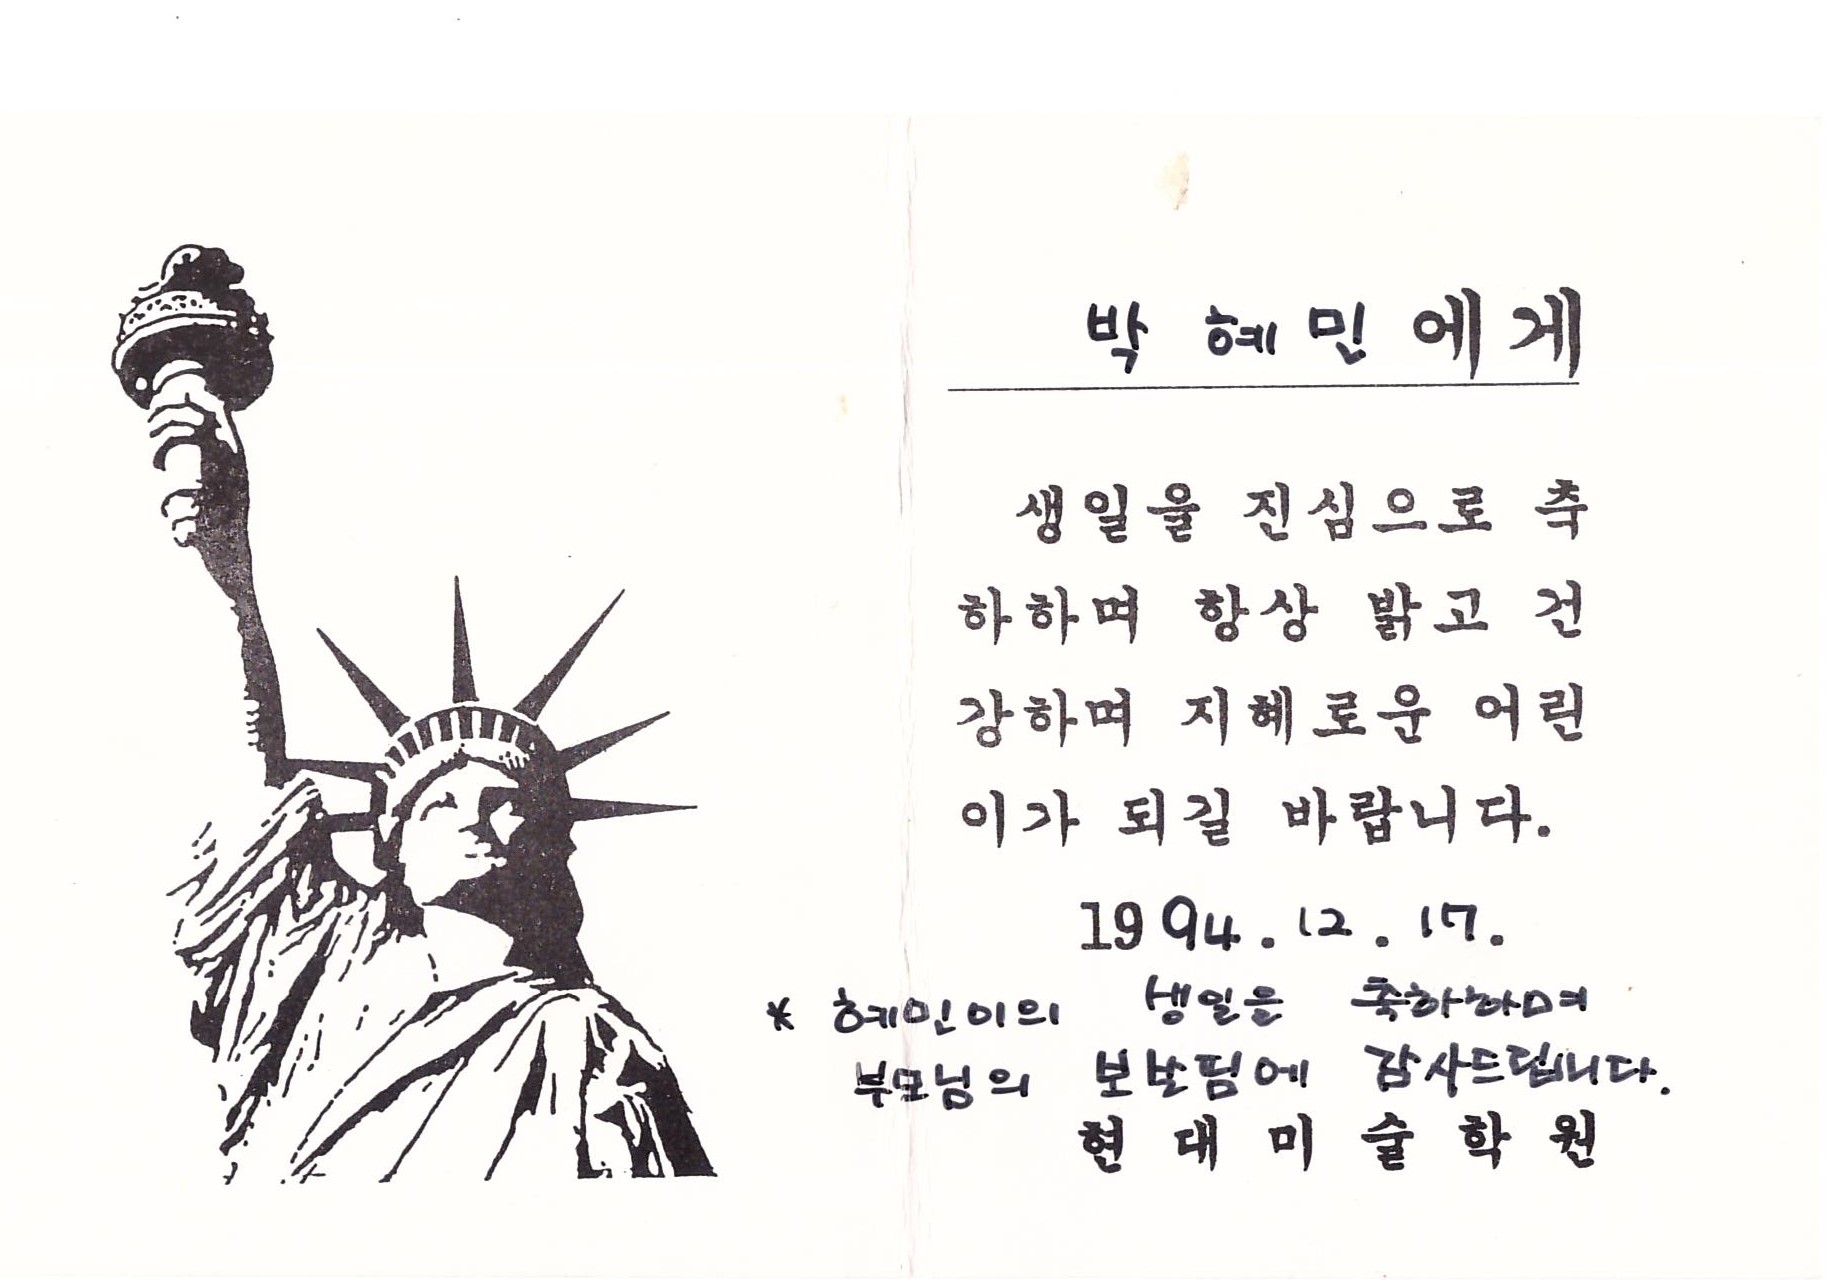 박 혜민에게
생일을 진심으로 축
하하며 항상 밝고 건
강하며 지혜로운 어린
이가 되길 바랍니다.
1994.12.17.
* 혜민이의 생일을 축하하며
부모님의 보살핌에 감사드립니다.
현대미술학원